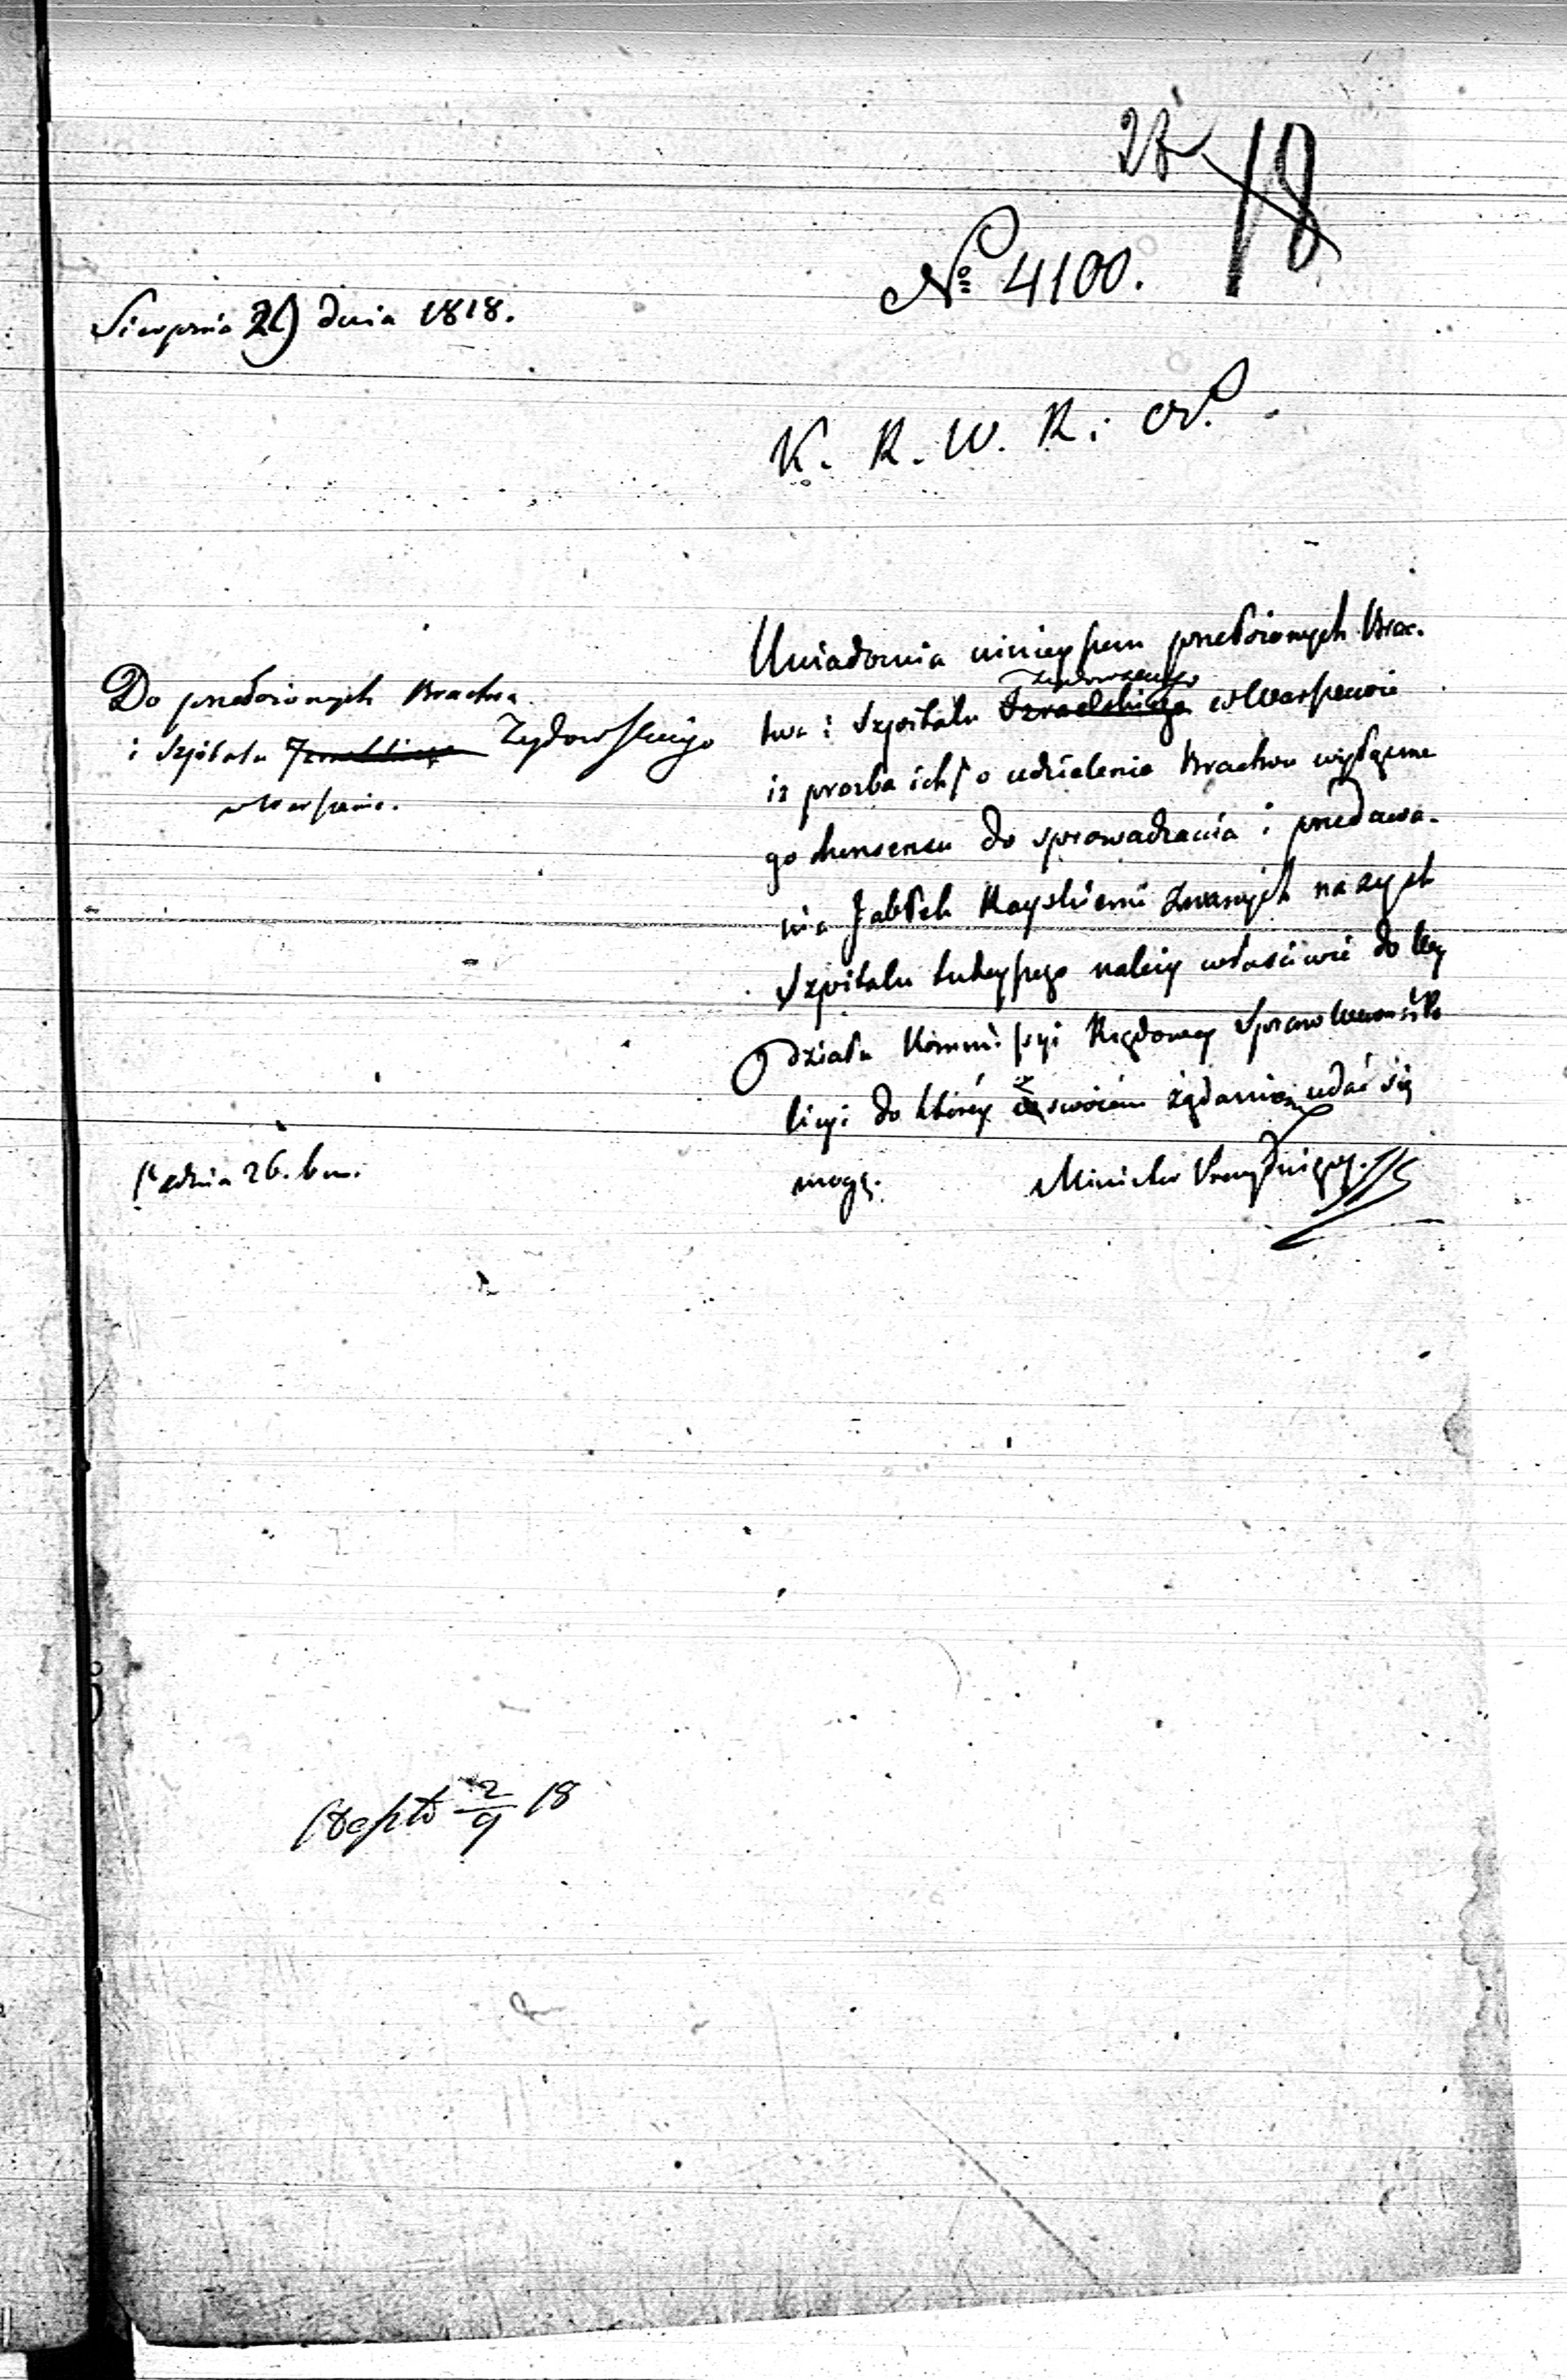 28 18
№ 4100.
Sierpnia 29 dnia 1818.
K. R. W. R. i O. P.
Do przełożonych Bractwa
i Szpitalu Izraelskiego Żydowskiego
w Warszawie.
Uwiadomia ninieyszem przełożonych Brac-
Żydowskiego
twa i Szpitalu Izraelskiego w Warszawie
iż prozba ich o udzielenie Bractwu wyłączne-
go konsensu do sprowadzania i przedawa-
nia Jabłek Rayskiemi zwanych na zysk
Szpitalu tuteyszego należy właściwie do Wy
działu Kommissyi Rządowey Spraw Wewn. i Po
licyi do którey z swoiém żądaniem udać się
mogą. Minister Prezyduiący.
dnia 26. b. m.
2/9 18